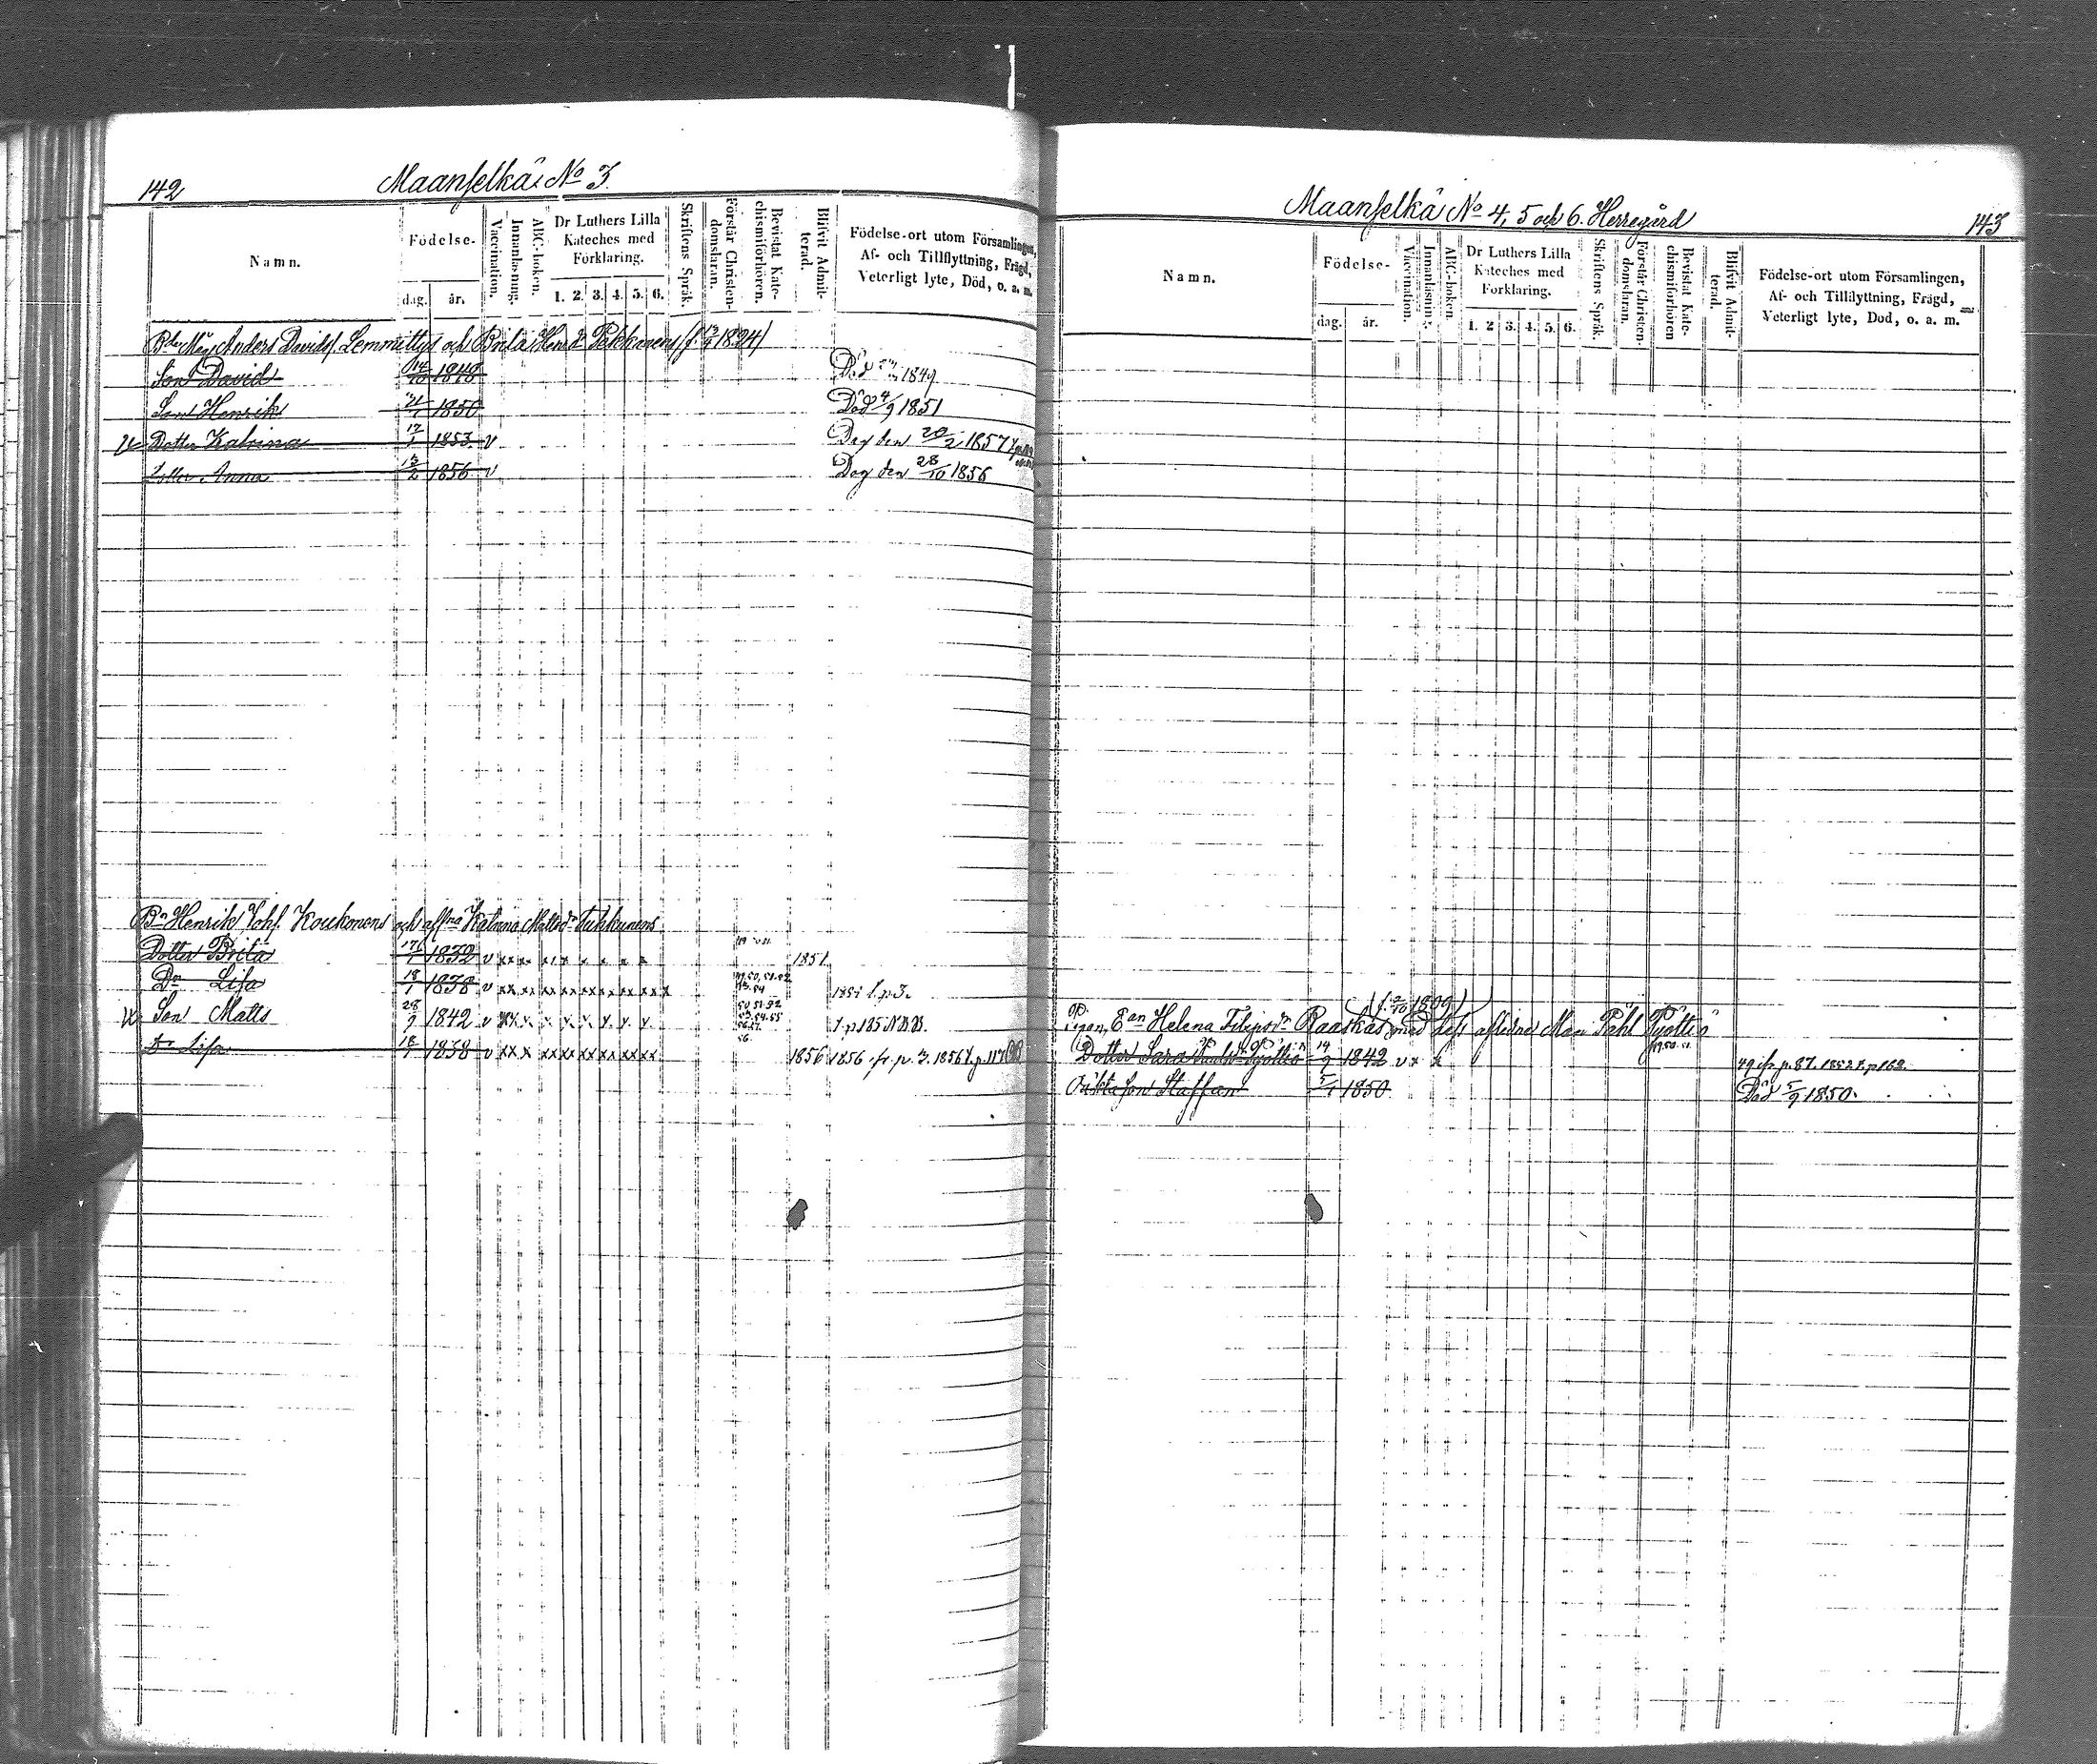 142
Maanselkä No 3.
Namn.
Födelse-
dag.
år.
Vaccination.
Innanläsning.
ABC-boken.
Dr Luthers Lilla
Kateches med
Förklaring.
1. 2. 3. 4. 5. 6.
Skriftens Språk.
Förstår Christen-
domsläran.
Bevistat Kate-
chismiförhören.
Blifvit Admit-
terad.
Födelse-ort utom Församlingen,
Af- och Tillflyttning, Frägd,
Veterligt lyte, Död, o. a. m.
Anders Davids. Lemmittys och Brita Henr.dr Pekkanens 1824
Son David 1848 Död 1849
Son Henrik 1850 Död 4/9 1851
Dotter Katrina 17/1 1853 v Dog den 20/2 1857
Dotter Anna 13/2 1856 v Dog den 28/10 1856
Bn Henrik Joh. Koukonens och Katrina Mattsdr Tukkunens
Dotter Brita 1832 v xx x x x x x x 1851
Dr Lisa 18/1 1838 v xx xx xx xx xx xx xx 50. 51. 52 53. 54 1851 f. p 3.
Son Matts 28/9 1842 v xx x x x x y. y. 50. 51. 52 53. 54. 55 56. 57. f. p 185
Dr Lisa 18/1 1838 v xx x xx xx xx xx xx 56. 1856 1856 fr. p. 3. 1856 f. p 117
143
Maanselkä No 4, 5 och 6. Herregård
Namn.
Födelse-
dag.
år.
Vaccination.
Innanläsning.
ABC-boken.
Dr Luthers Lilla
Kateches med
Förklaring.
1. 2 3. 4. 5. 6.
Skriftens Språk.
Förstår Christen-
domsläran.
Bevistat Kate-
chismiförhören
Blifvit Admit-
terad.
Födelse-ort utom Församlingen,
Af- och Tillflyttning, Frägd,
Veterligt lyte, Död, o. a. m.
1809)
Ean Helena Filipsdr Raaskas med dess aflidne Man Påhl
Dotter Sara 14/9 1842 v x x 49 ifr p. 87. 1852 f. p 162.
Oäkta son Staffan 5/1 1850 Död 5/9 1850.